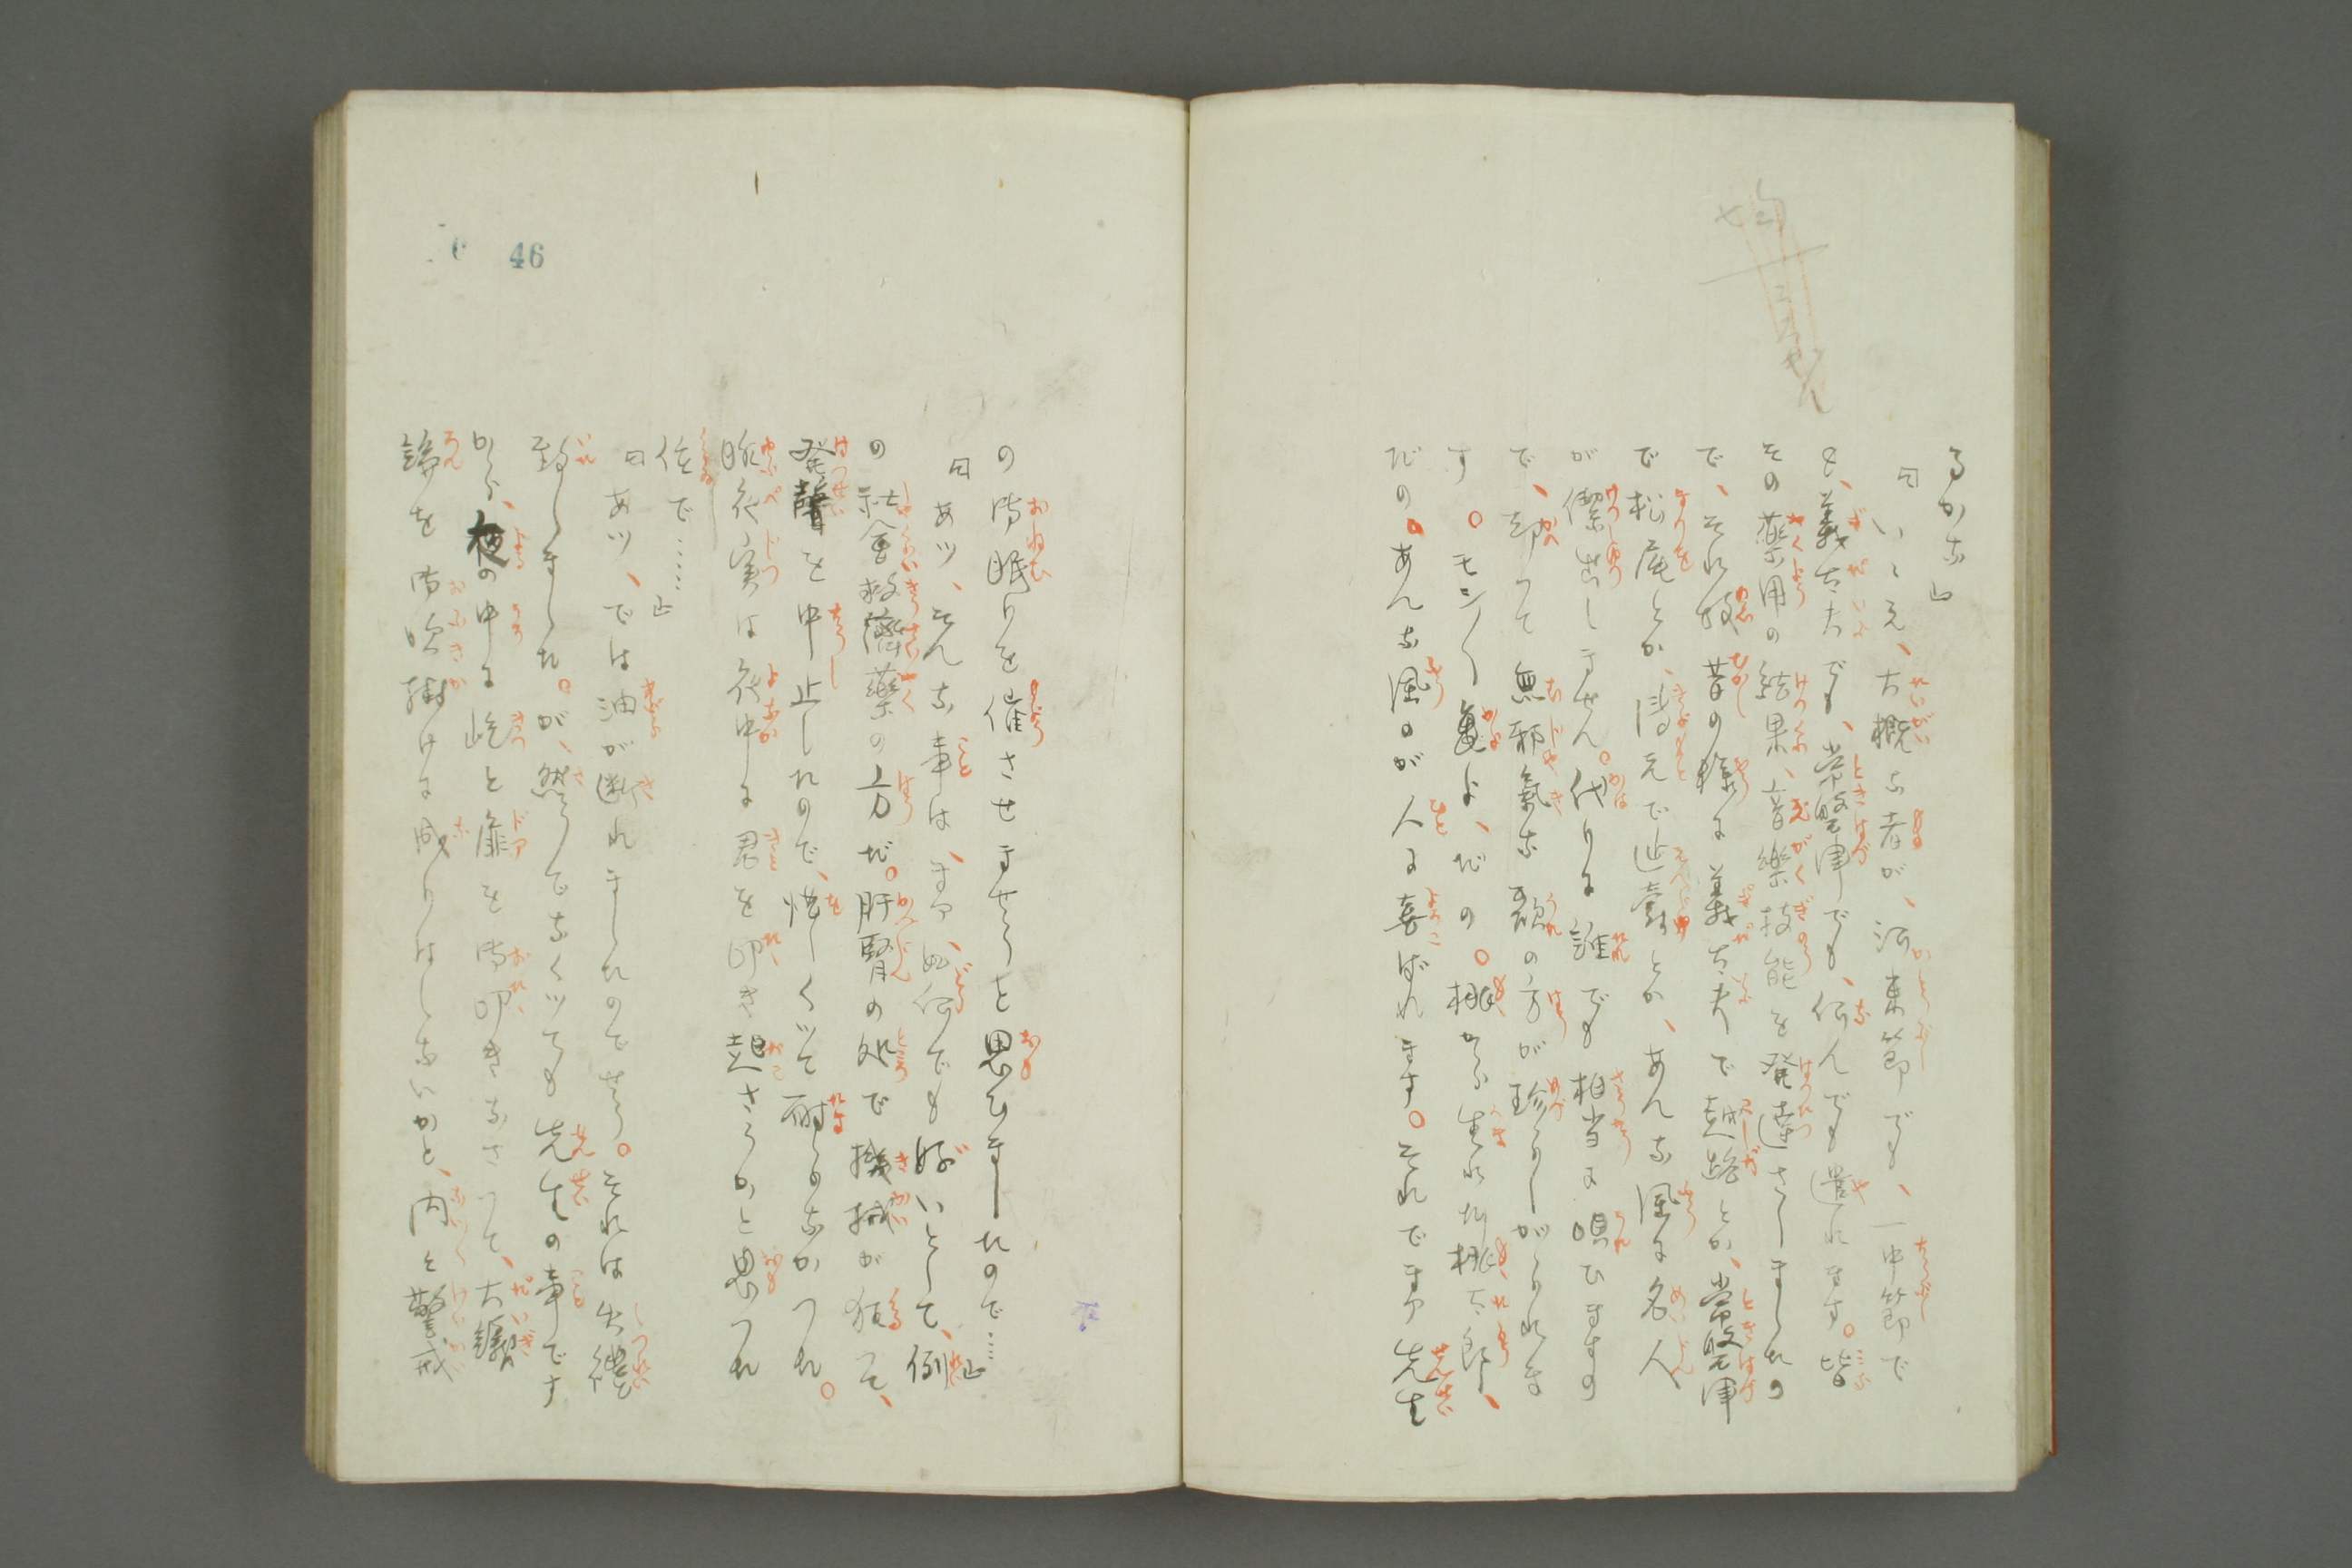 るかな」
「いゝえ、大概な者が、河東節でも、一中節で
も、義太夫でも、常磐津でも、何んでも遣れます。皆
その薬用の結果、音樂技能を発達さしましたの
で、それ故昔の様に義太夫で越路とか、常磐津
で松尾とか、清元で延壽とか、あんな風に名人
が傑出しません。代りに誰でも相当に唄ひますの
で、却つて無邪氣な歌の方が珍らしがられま
す。モシ〳〵亀よ、だの。桃から生れた桃太郎、
だの。あんな風のが人に喜ばれます。それでまア先生
の御眠りを催させませうと思ひましたので……」
「あツ、そんな事は、まア、如何でも好いとして、例
の社會救濟藥の方だ。肝腎の処で機械が狂つて、
発聲を中止したので、惜しくツて耐らなかつた。
昨夜実は夜中に君を叩き起さうかと思つた
位で……」
「あツ、では油が断れましたのでせう。それは失禮
致しました。が、然うでなくツても先生の事です
から、夜の中に屹と扉を御叩きなさつて、大譏
論を御吹掛けに成りはしないかと、内々警戒
46